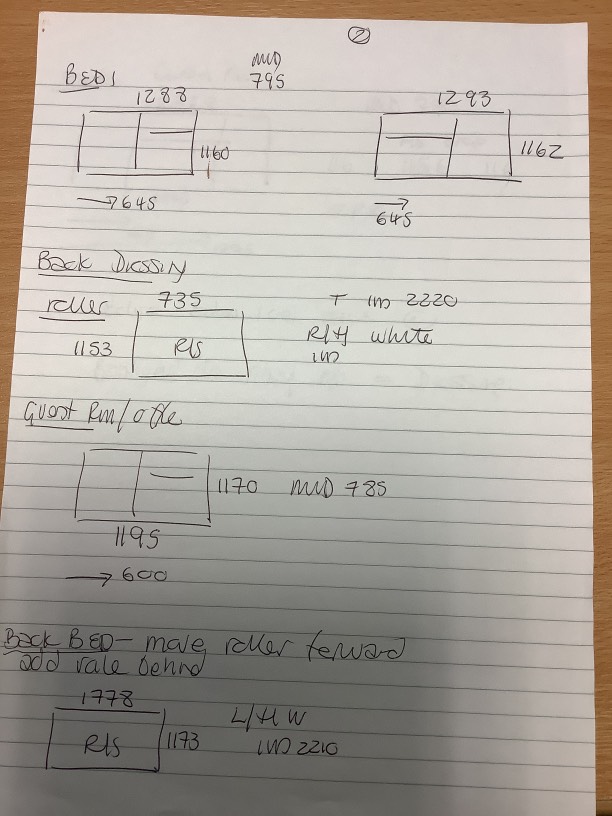 2
MID
BED1 795
1288 1293
1160 1162
→ 645 →
645
Back Dressing
roller 735 T IND 2220
1153 R/S R/H white
IND
Guest Rm/office
1170 MID 785
1195
→ 600
Back BED - move roller forward
add vale behind
1778 L/H W
R/S 1173 IND 2210